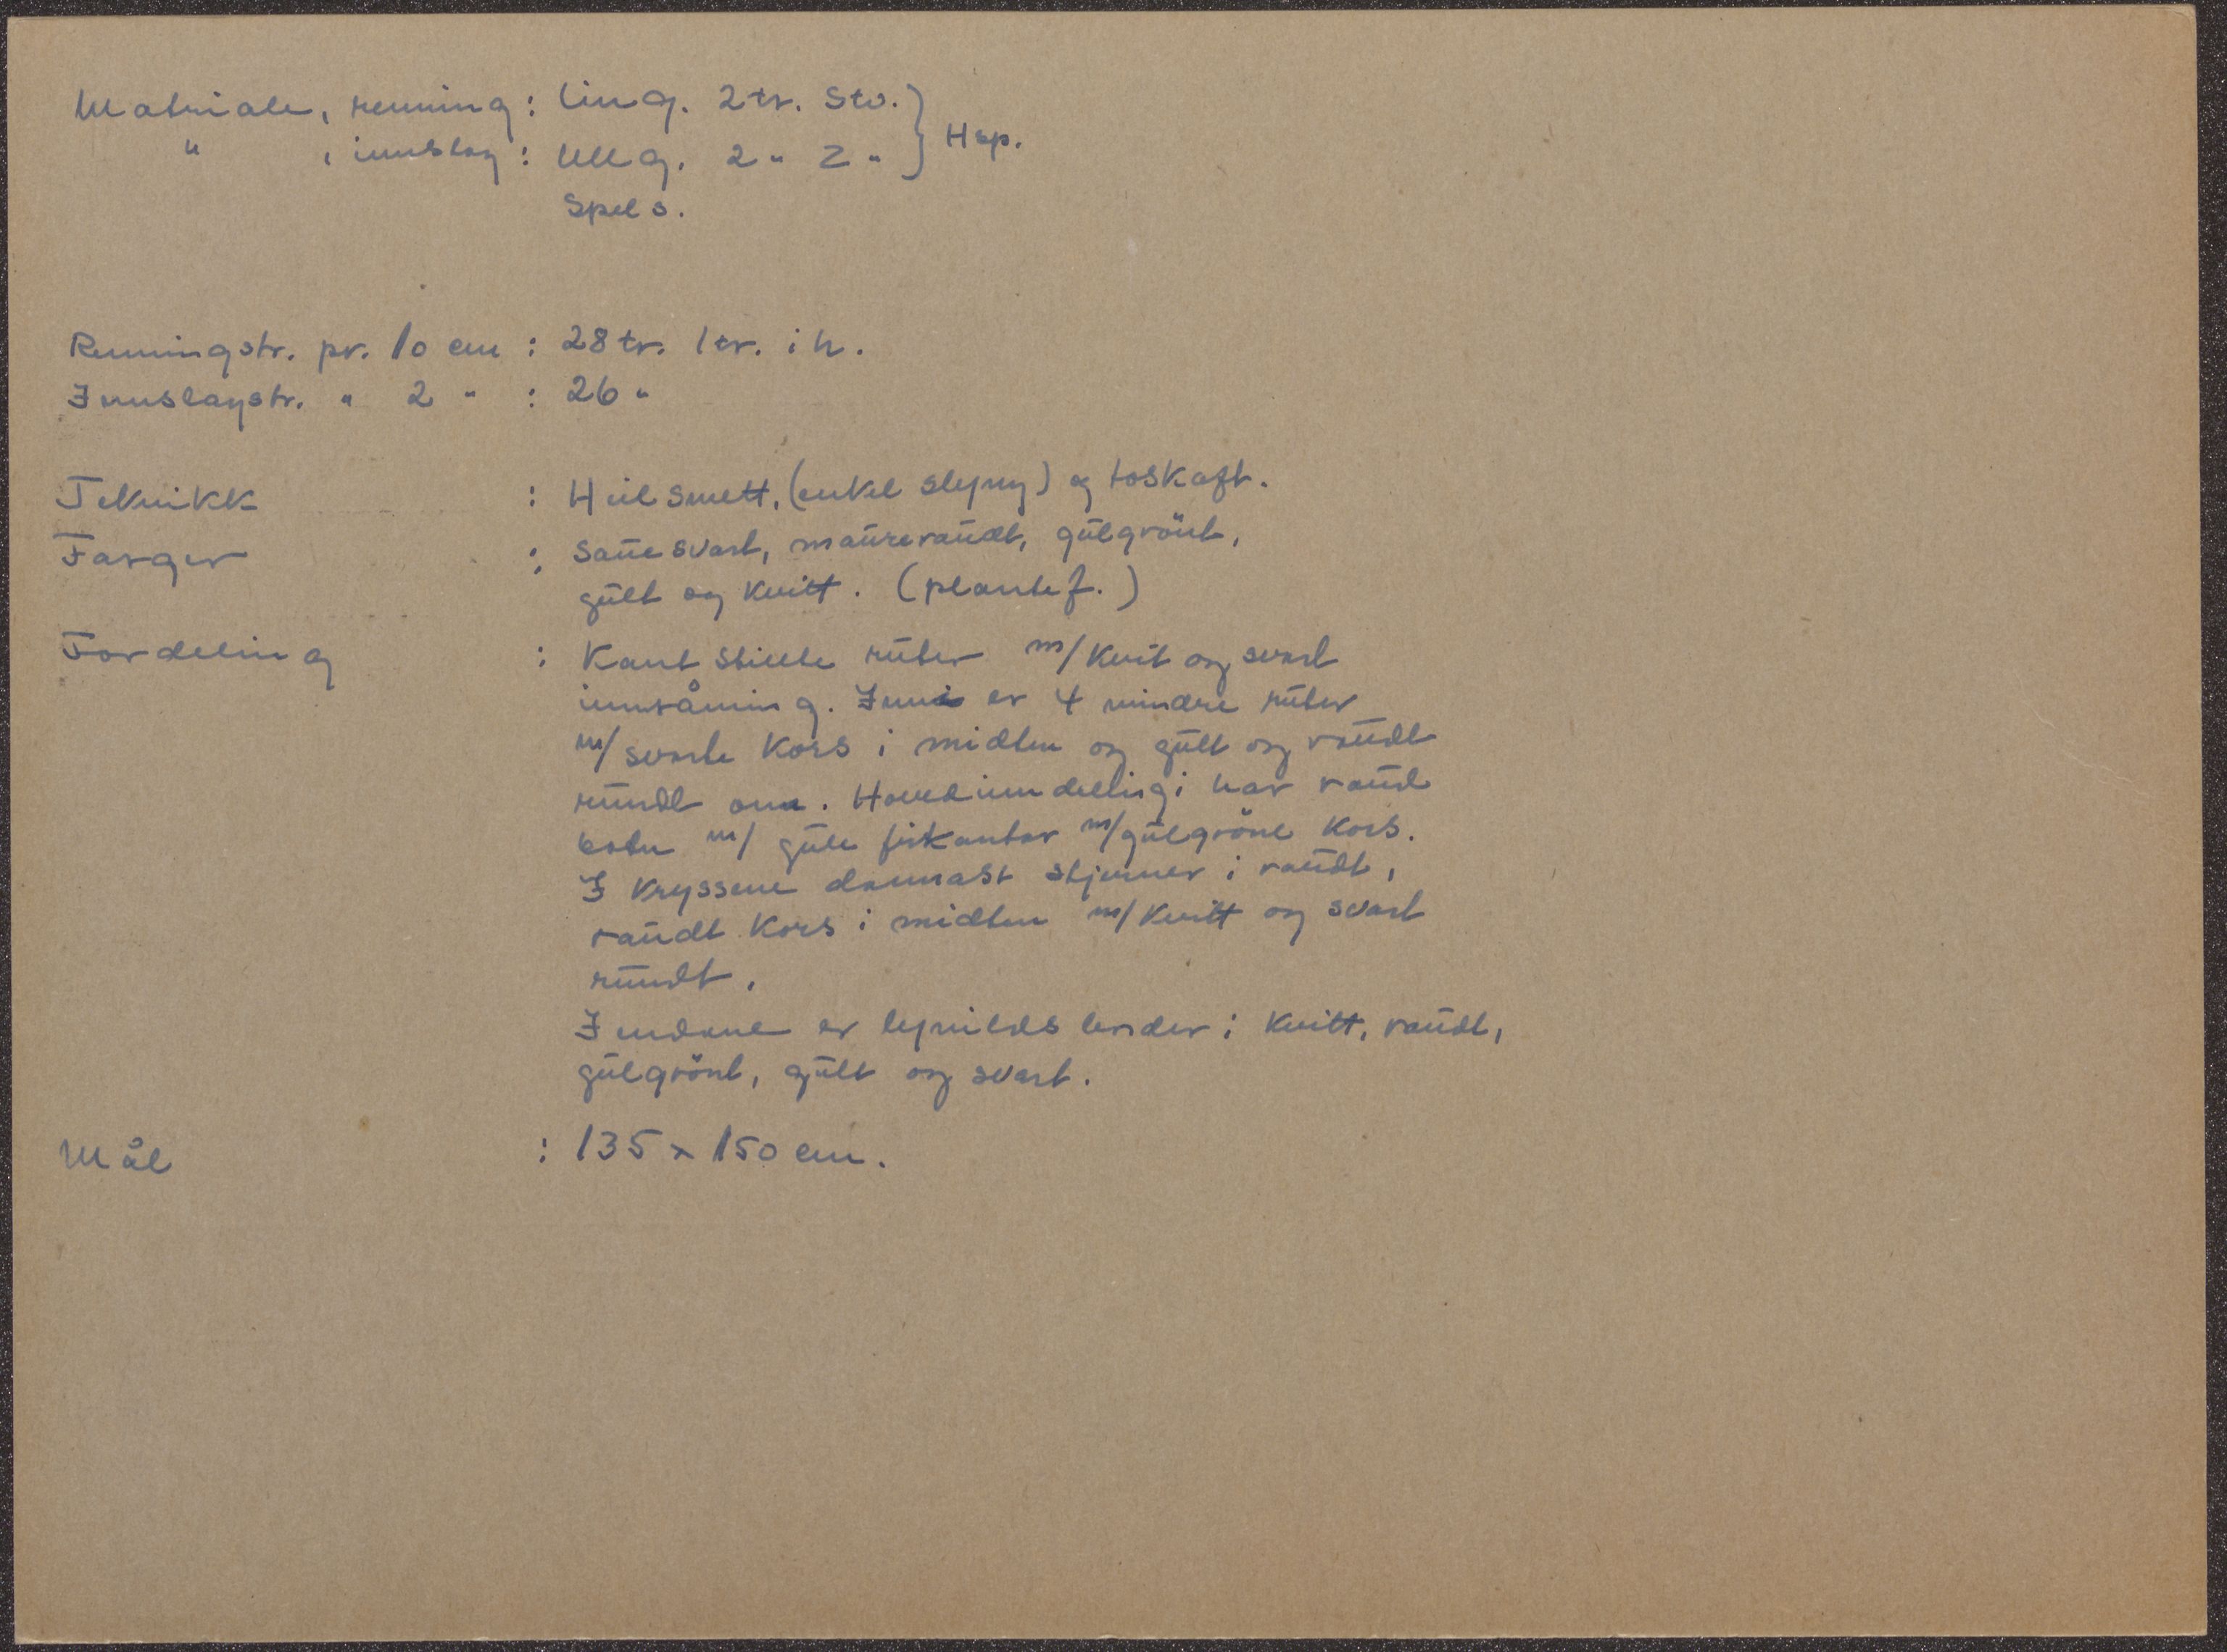 Matriale, renning: Ling. 2 tr. Stv. } Hsp.
" , innslag: Ullg. 2 " Z " }
Spels.
Renningstr. pr. 10 cm : 28 tr. 1 tr. i h.
Innslagstr. " 2 " : 26 "
Teknikk : Hulsmett, (enkel slyng) og toskaft.
Farger : Sauesvart, maureraudt, gulgrönt,
gult og kvitt. (plantef.)
Fordeling : Kantstillte ruter m/ kvit og svart
innråming. Inni er 4 mindre ruter
m/ svarte kors i midten og gult og raudt
rundt om. Hovedinndelingi har raud
botn m/ gule firkantar m/ gulgröne kors.
I kryssene dannast stjerner i raudt,
raudt kors i midten m/ kvitt og svart
rundt.
I endane er border i kvitt, raudt,
gulgrönt, gult og svart.
Mål : 135 x 150 cm.